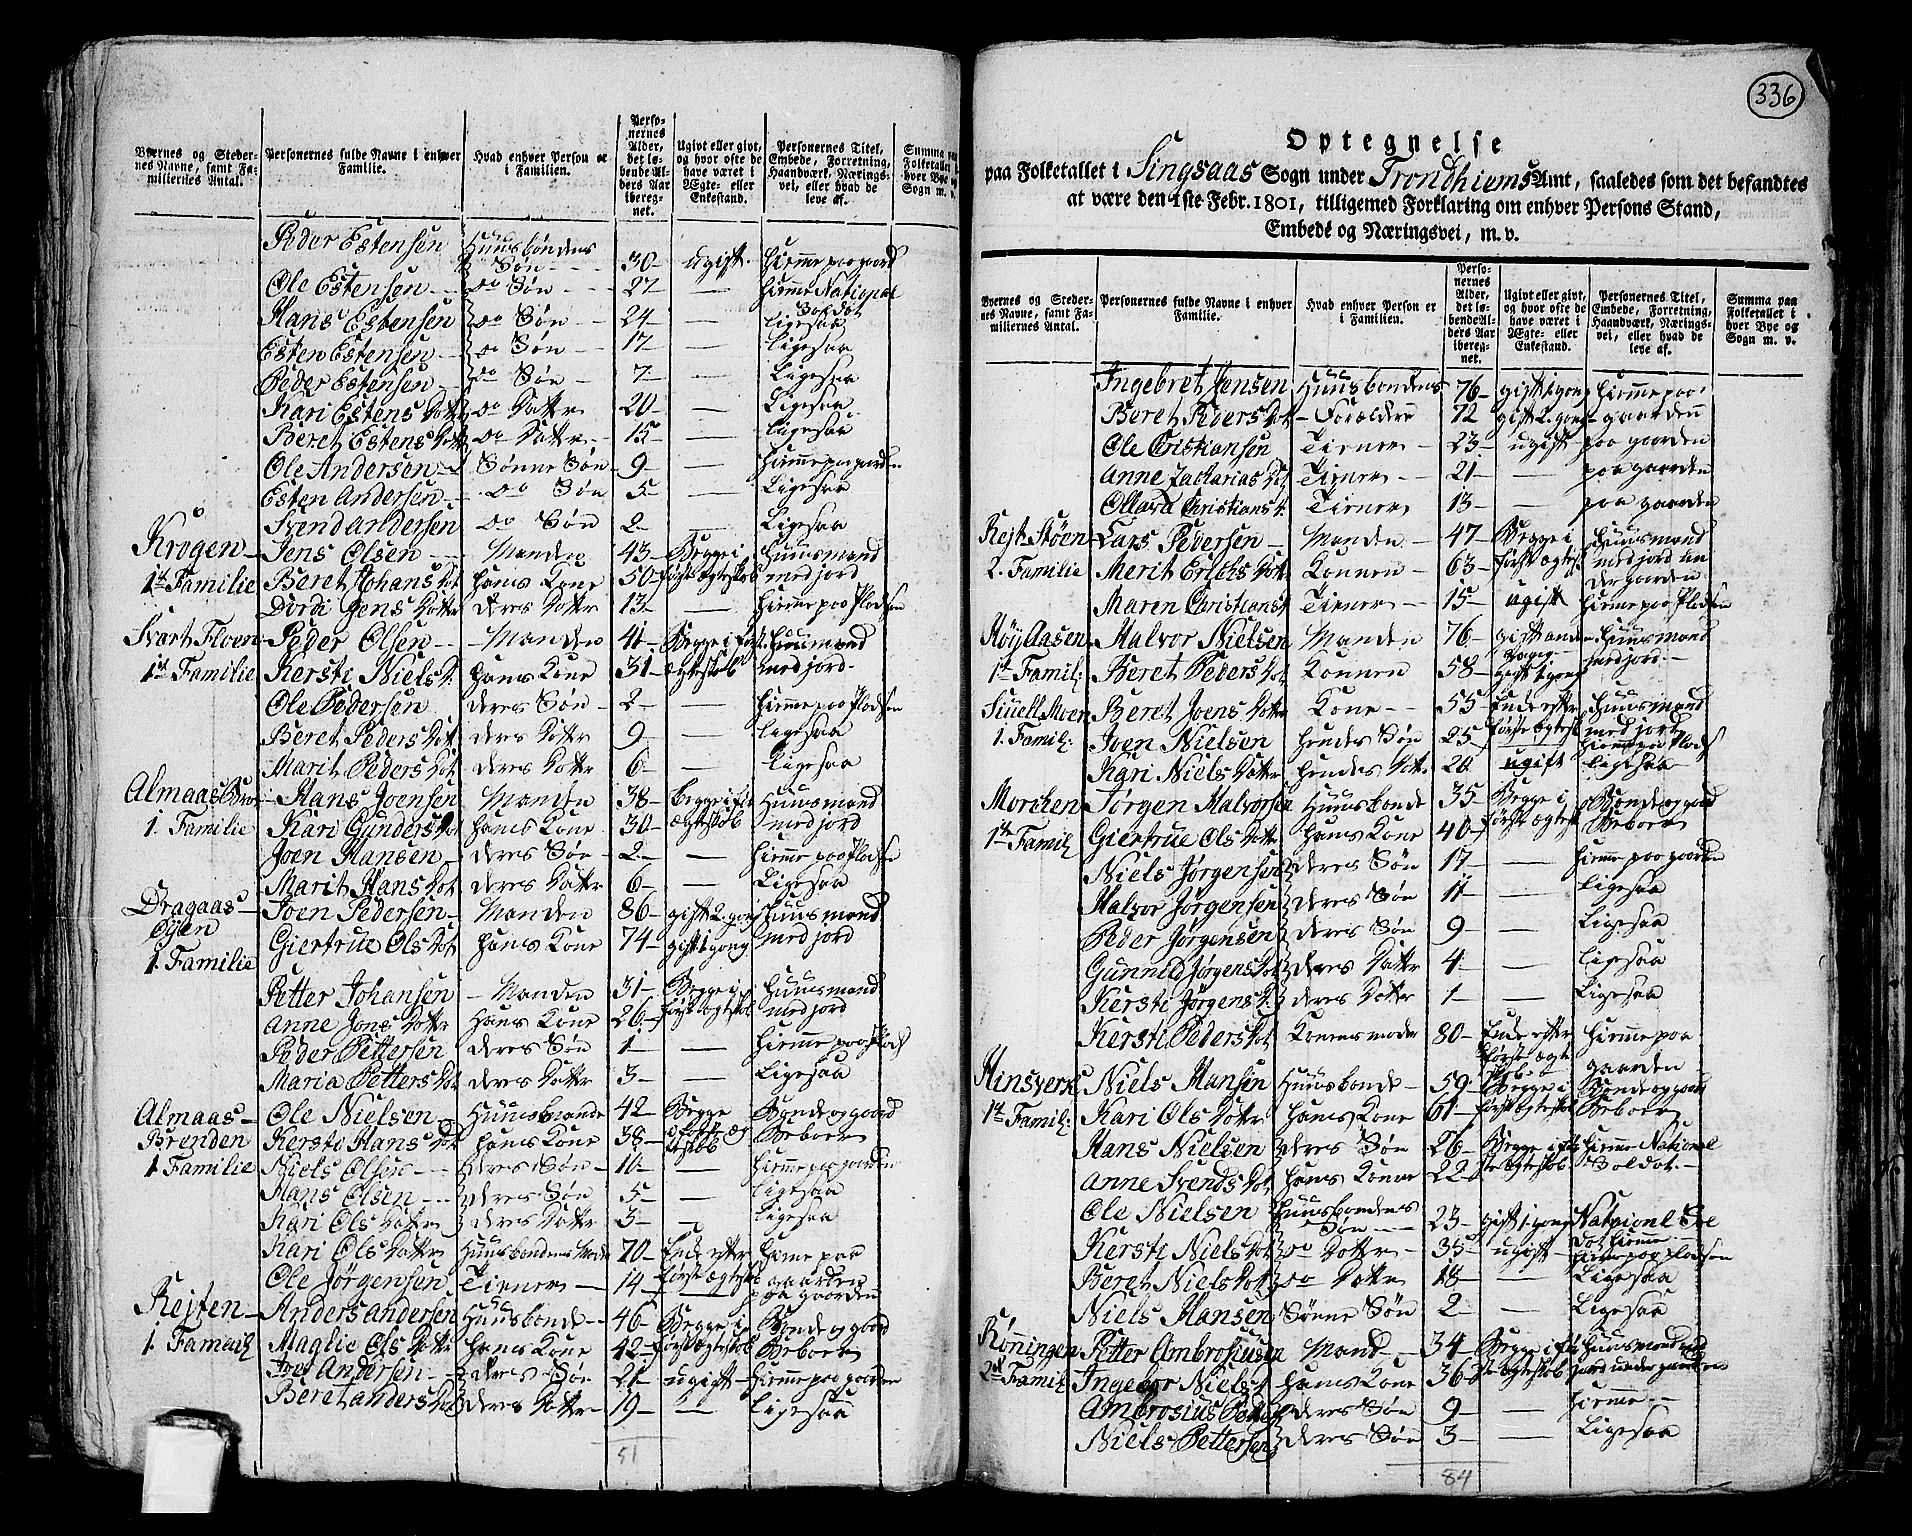 Byernes og Steder-
nes Navne, samt Fa-
miliernes Antal.
Personernes fulde Navne i enhver
Familie.
Hvad enhver Person er
i Familien.
Perso-
nernes
Alder,
det lø-
bende Al-
ders Aar
iberegnet.
Ugivt eller givt,
og hvor ofte de
have været i
Ægte- eller
Enkestand.
Personernes Titel,
Embede, Forretning,
Haandværk, Nærings-
vei, eller hvad de
leve af.
Summa paa
Folketallet i
hver Bye og
Sogn m. v.
Peder Estensen Huusbondens Søn 30 ugift hiemme paa gaard
Ole Estensen do Søn 27 — hiemme National Soldat
Hans Estensen do Søn 24 — Ligesaa
Esten Estensen do Søn 17 — Ligesaa
Peder Estensen do Søn 7 — Ligesaa
Kari Estens Dotter do Datter 20 — Ligesaa
Beret Estens Dotter do Datter 15 — Ligesaa
Ole Andersen Sønne Søn 9 — hiemme paa gaarden
Esten Andersen do Søn 5 — Ligesaa
Svend Andersen do Søn 2 — Ligesaa
Krogen Jens Olsen Manden 43 Begge i Huusmand
1te Familie Beret Johans Dot hans Kone 50 første ægteskab med jord
Dordi Jens Dotter deres Dotter 13 — hiemme paa Pladsen
Svart Floen Peder Olsen Manden 41 Begge i først Huusmand
1te Familie Kersti Niels D. hans Kone 31 ægteskab med jord
Ole Pedersen deres Søn 2 — hiemme paa Pladsen
Beret Peders Dot deres Dotter 9 — Ligesaa
Marit Peders Dot deres Dotter 6 — Ligesaa
Almaas Hans Joensen Manden 38 begge i første Huusmand
1. Familie Kari Gunders Dot hans Kone 30 ægteskab med jord
Joen Hansen deres Søn 2 — hiemme paa Pladsen
Marit Hans Dot deres Dotter 6 — Ligesaa
Dragaas- Joen Pedersen Manden 86 gift 2. gang Huusmand
Øyen Giertrue Ols Dot hans Kone 74 gift 1 gang med jord
1. Familie
Petter Johansen Manden 31 Begge i Huusmand
Anne Jons Dotter hans Kone 26 første ægteskab med jord
Peder Pettersen deres Søn 1 — hiemme paa Plads
Maria Petters Dot deres Dotter 3 — Ligesaa
Almaas- Ole Nielsen Huusbonde 42 Begge Bonde og gaard
Brenden Kersti Hans Dot hans Kone 38 i første ægteskab Beboer
1 Familie Niels Olsen deres Søn 16 — hiemme paa gaarden
Hans Olsen deres Søn 5 — Ligesaa
Kari Ols Datter deres Dotter 3 — Ligesaa
Kari Ols Datter Huusbondens Moder 70 Enke efter første ægteskab hiemme paa gaarden
Ole Jørgensen Tiener 14 — paa gaarden
Rejten Anders Andersen Huusbonde 46 Begge i Bonde og gaard
1. Famailj Maglie Ols Datter hans Kone 42 første ægteskab Beboer
Andersen deres Søn 21 ugift hiemme paa gaarden
Beret Anders Dot deres Dotter 19 — Ligesaa
51
336
Optegnelse
paa Folketallet i Singsaas Sogn under Trondhiems Amt, saaledes som det befandtes
at være den 1ste Febr. 1801, tilligemed Forklaring om enhver Persons Stand,
Embede og Næringsvei, m. v.
Byernes og Steder-
nes Navne, samt Fa-
miliernes Antal.
Personernes fulde Navne i enhver
Familie.
Hvad enhver Person er
i Familien.
Perso-
nernes
Alder,
det lø-
bende Al-
ders Aar
iberegnet.
Ugivt eller givt,
og hvor ofte de
have været i
Ægte- eller
Enkestand.
Personernes Titel,
Embede, Forretning,
Haandværk, Nærings-
vei, eller hvad de
leve af.
Summa paa
Folketallet i
hver Bye og
Sogn m. v.
Ingebret Jensen Huusbondens 76 gift 1 gang hiemme paa
Beret Peders Dot Forældre 72 gift 2. gang gaarden
Ole Cristiansen Tiener 23 ugift paa gaarden
Anne Zacharias Dot Tiener 21 — paa gaarden
Ollava Christians D. Tiener 13 — paa gaarden
Rejt Støen Lars Pedersen Manden 47 Begge i Huusmand
2. Familie Merit Erichs Dotter Konnen 63 første ægtesk med jord under gaarden
Maren Christians D Tiener 15 ugift hiemme paa Pladsen
Høy Aasen Halvor Nielsen Manden 76 gift anden gang Huusmand
1te Famil: Beret Peders Dot Konnen 58 gift 1 gang med jord
Moen Beret Joens Dotter Kone 55 Enke efter første ægtesk Huusmand med jord
1. Famil: Joen Nielsen hendes Søn 25 ugift hiemme paa Plads
Kari Niels Datter hendes Dott. 20 Ligesaa
Morchen Jørgen Halvorsen Huusbonde 35 Begge i Bonde og gaard
1te Famil: Giertrue Ols Dotter hans Kone 40 første ægtesk Beboer
Niels Jørgensen deres Søn 17 — hiemme paa gaarden
Halvor Jørgensen deres Søn 11 — Ligesaa
Peder Jørgensen deres Søn 9 — Ligesaa
Gunnild Jørgens Dot deres Datter 4 — Ligesaa
Kersti Jørgens D. deres Dotter 1 — Ligesaa
Kersti Peders Dot Konens moder 80 Enke efter første ægteskab hiemme paa gaarden
Hinsverk Niels Hansen Huusbonde 59 Begge i Bonde og gaard
1te Famil: Kari Ols Dotter hans Kone 61 første ægteskab Beboer
Hans Nielsen deres Søn 26 Begge i før- hiemme National
Anne Svends Dot hans Konne 22 ste ægteskab Soldat
Ole Nielsen Huusbondens Søn 23 gift 1 gang National Soldat hiemme
Kersti Niels Dot do Dotter 35 ugift hiemme paa pladsen
Beret Niels Dot do Datter 18 — Ligesaa
Niels Hansen Sønne Søn 2 — Ligesaa
Rønningen Petter Ambrosiusen Mand 34 Begge i før- Huusmand med
2de Famil: Ingebor Niels D hans Kone 36 ste ægteskab jord under gaarden
Ambrosius Petter deres Søn 9 — hiemme
Niels Pettersen deres Søn 3 — Ligesaa
84